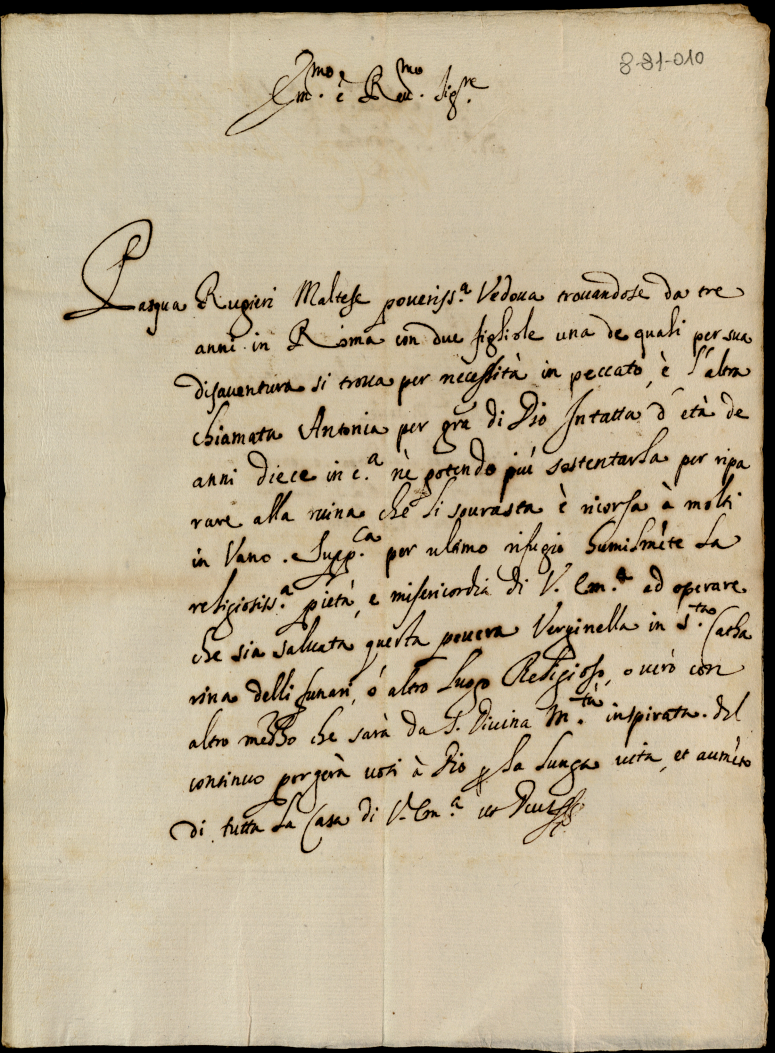 8-81-010
Em.mo è Reu.mo Sig.re
Pasqua Rugieri Maltese poueriss.a Vedoua trouandose da tre
anni in Roma con due figliole una de quali per sua
disauentura si troua per necessità in peccato, è l'altra
chiamata Antonia per gra di Dio Intatta d'età de
anni diece in c.a nè potendo più sostentarla per ripa
rare alla ruina che li sourasta è ricorsa à molti
in Vano. Supp.ca per ultimo rifugio humilmẽte la
religiosiss.a pietà, e misericordia di V. Em.a ad operare
che sia saluata questa pouera Verginella in S.ta Catha
rina delli funari, ó altro luogo Religioso, o uerò con
altro mezzo che sarà da S. Diuina M.tà inspirata. del
continuo porgerà uoti à Dio p la lunga uita, et aumẽto
di tutta la Casa di V. Em.a ut Deus